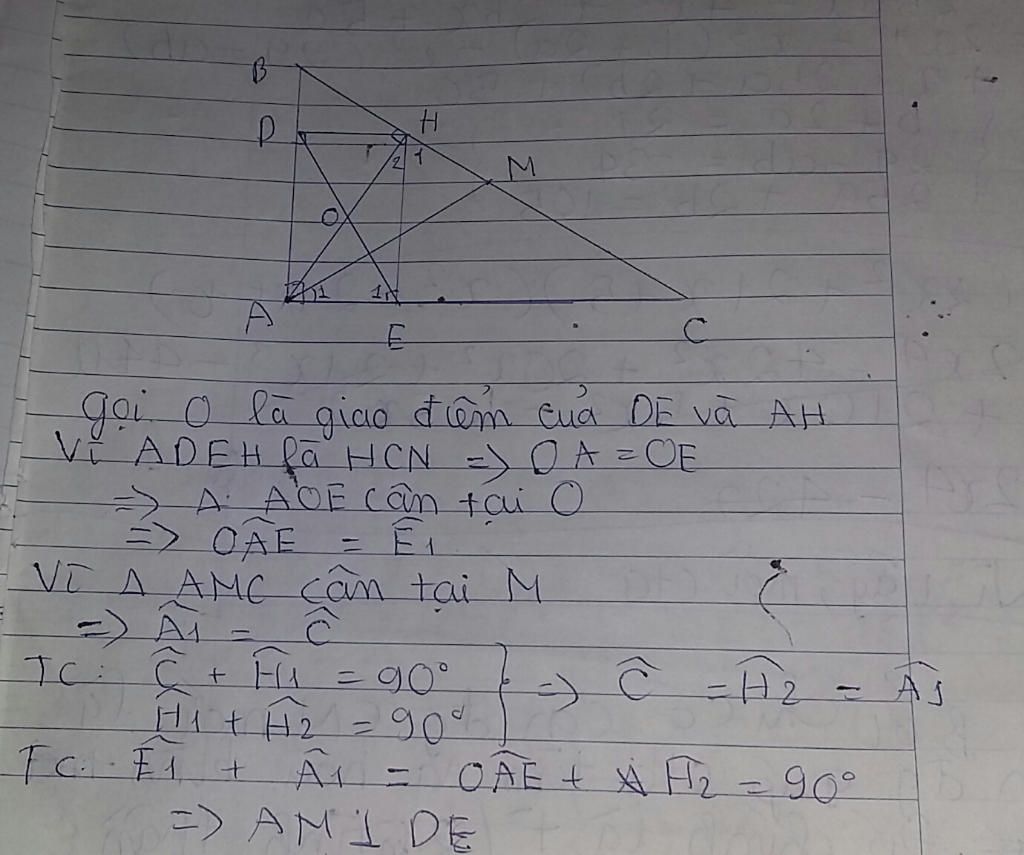 B
D
H
1
2
M
O
1
1
A
E
C
gọi O là giao điểm của DE và AH
Vì ADEH là HCN => OA = OE
=> Δ AOE cân tại O
=> OÂE = Ê1
Vì Δ AMC cân tại M
=> Â1 = Ĉ
TC: Ĉ + Ĥ1 = 90°
Ĥ1 + Ĥ2 = 90°
=> Ĉ = Ĥ2 = Â1
TC: Ê1 + Â1 = OÂE + Ĥ2 = 90°
=> AM ⊥ DE